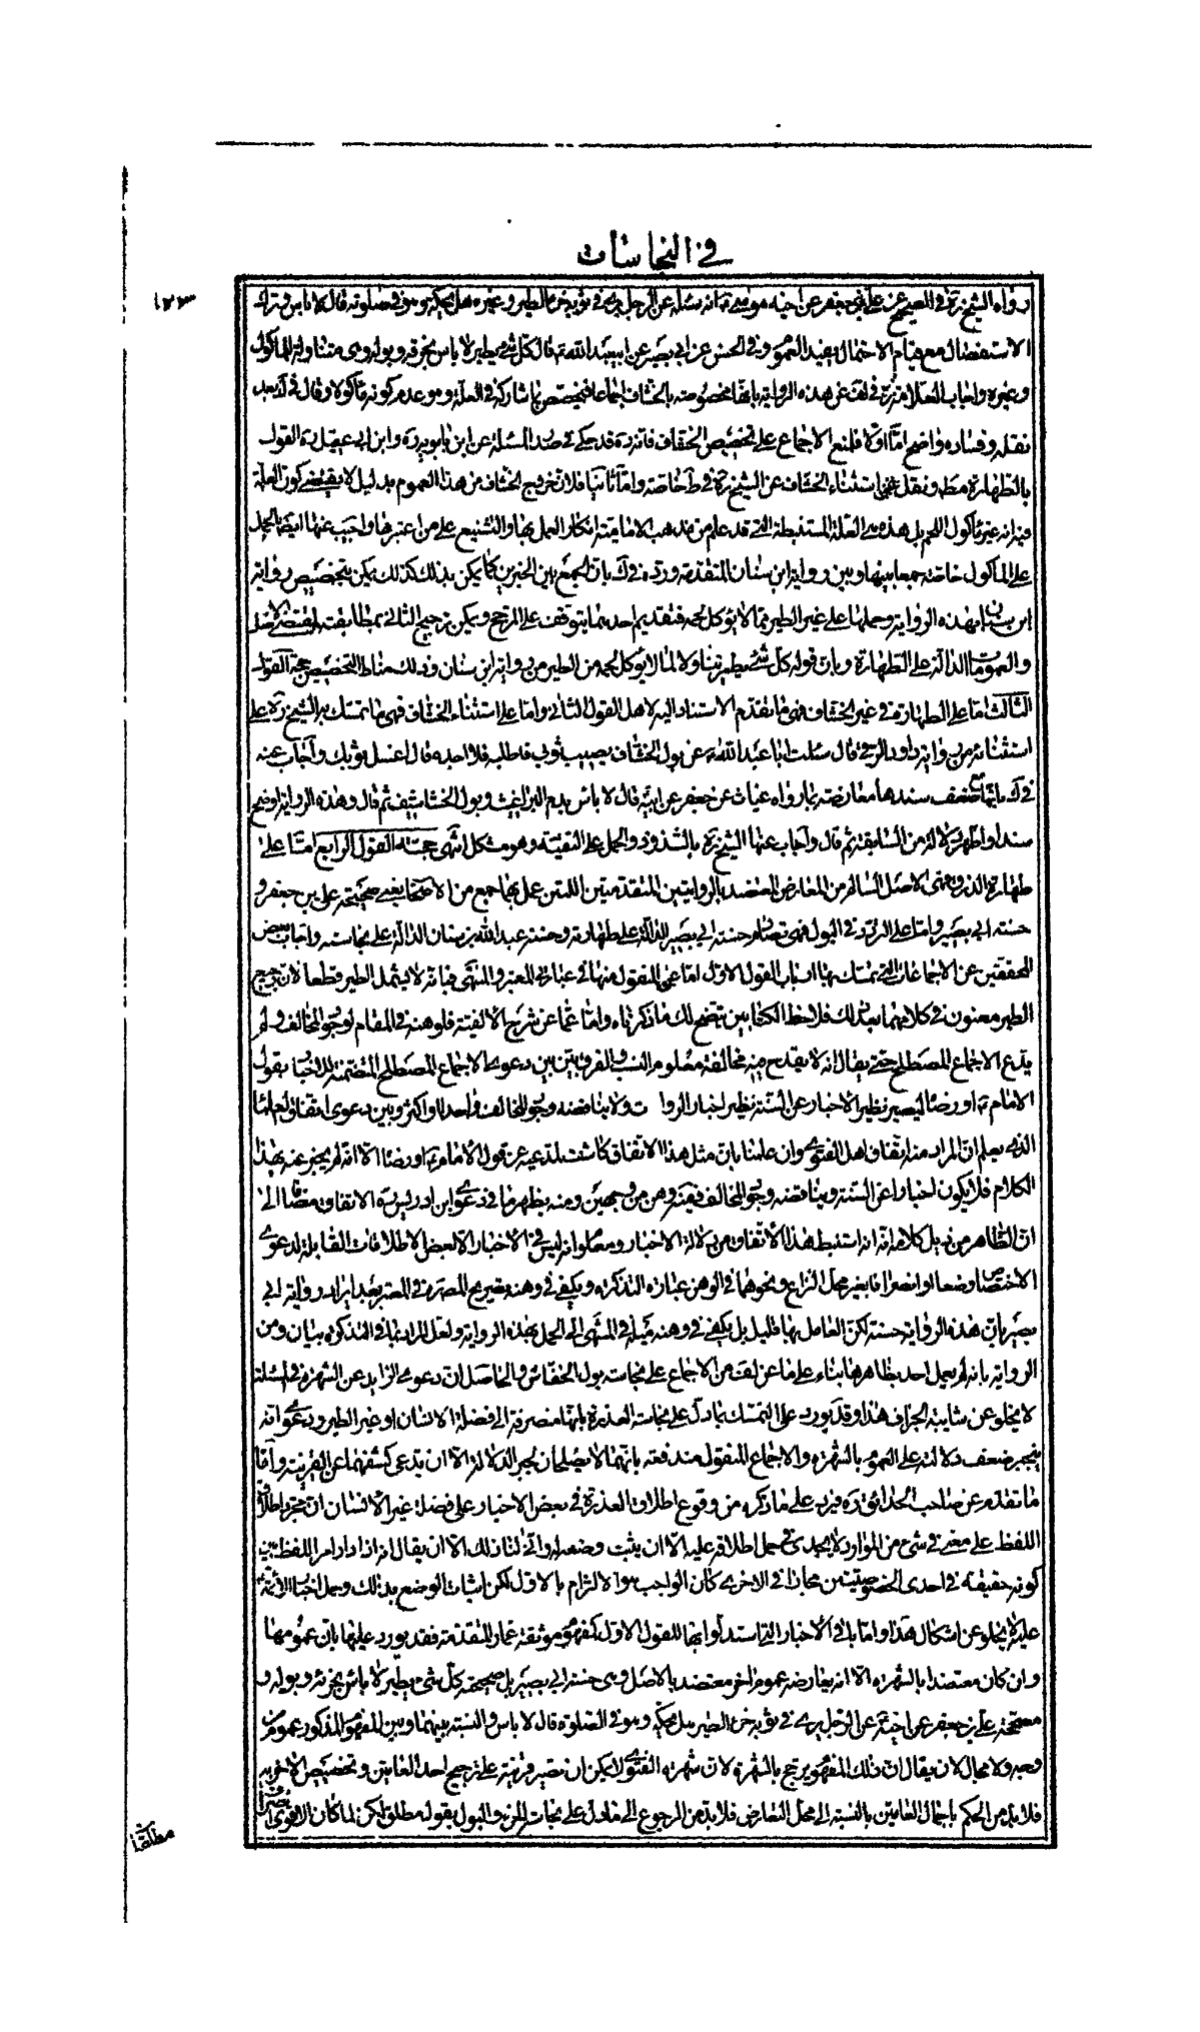 في النجاسات
١٢٣
رواه الشيخ ره في الصحيح عن علي بن جعفر عن اخيه موسى ع انه سئله عن الرجل يرى في ثوبه خرء الطير وغيره هل يحكه وهو في صلوته قال لا باس وترك
الاستفصال مع قيام الاحتمال يفيد العموم وفي الحسن عن ابي بصير عن ابيعبد الله ع قال كل شئ يطير لا باس بخرئه وبوله وهى متناولة للماكول
وغيره واجاب العلامة ره في لف عن هذه الرواية بانها مخصوصة بالخشاف اجماعا فيختص بما شاركه في العلة وهو عدم كونه ماكولا وقال في ك بعد
نقله وفساده واضح اما اولا فلمنع الاجماع على تخصيص الخفاف فانه ره قد حكى في صدر المسئلة عن ابن بابويه ره وابن ابي عقيل ره القول
بالطهارة مط ونقل استثناء الخشاف عن الشيخ ره في ط خاصة واما ثانيا فلان خروج الخشاف من هذا العموم بدليل لا يقتضى كون العلة
فيه انه غير مأكول اللحم بل هذه هي العلة المستنبطة التي قد علم من مذهب الامامية انكار العمل بها والتشنيع على من اعتبرها واجيب عنها ايضا بالحمل
على الماكول خاصة جمعا بينها وبين رواية ابن سنان المتقدمة ورده في ك بان الجمع بين الخبرين كما يمكن بذلك كذلك يمكن بتخصيص رواية
ابن سنان بهذه الرواية وحملها على غير الطير مما لا يؤكل لحمه فتقديم احدهما يتوقف على المرجح ويمكن ترجيح الثاني بمطابقته لمقتضى الاصل
والعمومات الدالة على الطهارة وبان قوله كل شئ يطير تناولا لما لا يؤكل لحمه من الطير من رواية ابن سنان وذلك مناط التخصيص حجة القول
الثالث اما على الطهارة في غير الخشاف فهي ما تقدم الاستناد اليه لاهل القول الثاني واما على استثناء الخشاف فهي ما تمسك به الشيخ ره على
استثنائه من رواية داود الرقي قال سئلت ابا عبد الله ع عن بول الخشاف يصيب ثوبي فاطلبه فلا اجده قال اغسل ثوبك واجاب عنه
في ك بانها ضعف سندها معارضة بما رواه غياث عن جعفر عن ابيه قال لا باس بدم البراغيث وبول الخشاشيف ثم قال وهذه الرواية اوضح
سندا واظهر دلالة من السابقة ثم قال واجاب عنها الشيخ ره بالشذوذ والحمل على التقية وهو مشكل انتهى حجة القول الرابع اما على
طهارة الذرق فهي الاصل السالم من المعارض المعتضد بالروايتين المتقدمتين اللتين عمل بهما جمع من الاصحاب يعني صحيحة علي بن جعفر و
حسنة ابي بصير واما على التردد في البول فهي تصادم حسنة ابي بصير الدالة على طهارته وحسنة عبد الله بن سنان الدالة على نجاسته واجاب بعض
المحققين عن الاجماعات التي تمسك بها ارباب القول الاول اما عن المنقول منها في عبارتي المعتبر والمنتهى فبانه لا يشمل الطير قطعا لان رجيع
الطير معنون في كلامهما بعد ذلك فلاحظ الكتابين يتضح لك ما ذكرناه واما عما عن شرح الالفية فلوهنه في المقام لوجود المخالف ولم
يدع الاجماع المصطلح حتى يقال انه لا يقدح فيه مخالفة معلوم النسب والفرق بين بين دعوى الاجماع المصطلح المتضمنة للاخبار بقول
الامام ع او رضاه ليصير نظير الاخبار عن السنة نظير اخبار الروا ت ولا يناقضه وجود المخالف واحدا او اكثر وبين دعوى اتفاق العلماء
الذي يعلم ان المراد منه اتفاق اهل الفتوى وان علمنا بان مثل هذا الاتفاق كاشف لمدعيه عن قول الامام ع او رضاه الا انه لم يخبر عنه بهذا
الكلام فلا يكون اخبارا عن السنة ويناقضه وجود المخالف فيهن وهن من وجهين ومنه يظهر ما في دعوى ابن ادريس ره الاتفاق مضافا الى
ان الظاهر من ذيل كلامه انه استنبط هذا الاتفاق من دلالة الاخبار ومعلوم انه ليس في الاخبار الا بعض الاطلاقات القابلة لدعوى
الاختصاص وضعا او انصرافا بغير محل النزاع ونحوهما في الوهن عبارة التذكرة ويكفي في وهنه تصريح المصره في المعتبر بعد ايراد رواية ابي
بصير بان هذه الرواية حسنة لكن العامل بها قليل بل يكفي في وهنه ميله في المنتهى الى العمل بهذه الرواية ولعل المراد بما في التذكرة بيان وهن
الرواية بانه لم يعمل احد بظاهرها بناء على ما عن لف من الاجماع على نجاسة بول الخفاش والحاصل ان دعوى الزايد عن الشهرة في المسئلة
لا يخلو عن شايبة الجزاف هذا وقد يورد على التمسك بما دل على نجاسة العذرة بانها منصرفة الى فضلة الانسان او غير الطير ودعوى انه
ينجبر ضعف دلالته على العموم بالشهرة والاجماع المنقول مندفعة بانهما لا يصلحان لجبر الدلالة الا ان يدعى كشفهما عن القرينة واما
ما تقدم عن صاحب الحدائق ره فيرد على ما ذكره من وقوع اطلاق العذرة في بعض الاخبار على فضلة غير الانسان ان مجرد اطلاق
اللفظ على معنى في شئ من الموارد لا يجدى في حمل اطلاقه عليه الا ان يثبت وضعه له وانى لنا ذلك الا ان يقال انه اذا دار امر اللفظ بين
كونه حقيقة في احدى الخصوصيتين مجازا في الاخرى كان الواجب هو الالتزام بالاول لكن اثبات الوضع بذلك وحمل اخبار الائمة
عليه لا يخلو عن اشكال هذا واما باقي الاخبار التي استدلوا بها للقول الاول كمفهوم موثقة عمار المتقدمة فقد يورد عليها بان عمومها
وان كان معتضدا بالشهرة الا انه يعارضه عموم اخر معتضد بالاصل وهى حسنة ابي بصير بل صحيحته كل شئ يطير لا باس بخرئه وبوله و
صحيحة علي بن جعفر عن اخيه ع عن الرجل يرى في ثوبه خرء الطير هل يحكه وهو في الصلوة قال لا باس والنسبة بينهما وبين المفهوم المذكور عموم من
وجه ولا مجال لان يقال ان ذلك المفهوم يرجح بالشهرة لان شهرة الفتوى لا يمكن ان تصير قرينة على ترجيح احد العامين وتخصيص الاخر به
فلا بد من الحكم باجمال العامين بالنسبة الى محل التعارض فلا بد من الرجوع الى ما دل على نجاسة الخرء والبول بقول مطلق لكن لما كان الاقوى
مطلقا